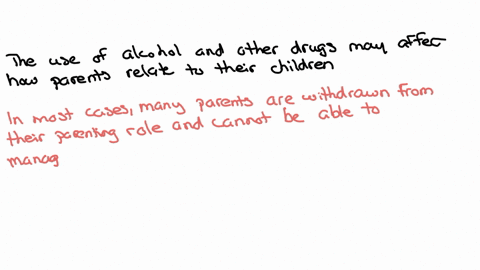 The use of alcohol and other drugs may affec
how parents relate to their children
In most cases, many parents are withdrawn from
their parenting role and cannot be able to
manag